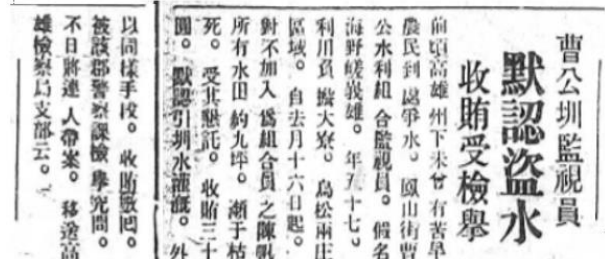 曹公圳監視員
默認盜水
收賄受檢舉
前頃高雄州下未曾有苦旱
農民到處爭水。鳳山街曹
公水利組合監視員。假名
海野嵯峩雄。年五十七。
利用負擔大寮。鳥松兩庄
區域。自去月十六日起。
對不加入為組合員之陳
所有水田約九坪。瀕于枯
死。受其懇託。收賄三十
圓。默認引圳水灌溉。外
以同樣手段。收賄數回。
被該郡警察課檢舉究問。
不日將連人帶案。移送高
雄檢察局支部云。